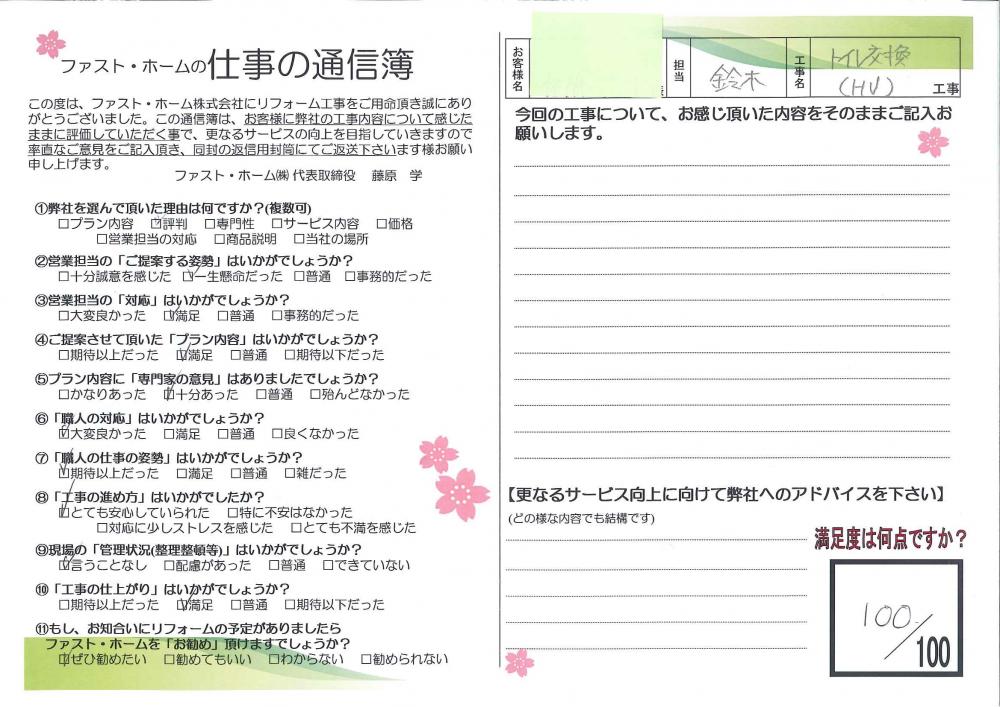 ファスト・ホームの仕事の通信簿
この度は、ファスト・ホーム株式会社にリフォーム工事をご用命頂き誠にあり
がとうございました。この通信簿は、お客様に弊社の工事内容について感じた
ままに評価していただく事で、更なるサービスの向上を目指していきますので
率直なご意見をご記入頂き、同封の返信用封筒にてご返送下さいます様お願い
申し上げます。
ファスト・ホーム㈱ 代表取締役 藤原 学
①弊社を選んで頂いた理由は何ですか?(複数可)
□プラン内容 ☑評判 □専門性 □サービス内容 □価格
□営業担当の対応 □商品説明 □当社の場所
②営業担当の「ご提案する姿勢」はいかがでしょうか?
□十分誠意を感じた ☑一生懸命だった □普通 □事務的だった
③営業担当の「対応」はいかがでしょうか?
□大変良かった ☑満足 □普通 □事務的だった
④ご提案させて頂いた「プラン内容」はいかがでしょうか?
□期待以上だった ☑満足 □普通 □期待以下だった
⑤プラン内容に「専門家の意見」はありましたでしょうか?
□かなりあった ☑十分あった □普通 □殆んどなかった
⑥「職人の対応」はいかがでしょうか?
☑大変良かった □満足 □普通 □良くなかった
⑦「職人の仕事の姿勢」はいかがでしょうか?
☑期待以上だった □満足 □普通 □雑だった
⑧「工事の進め方」はいかがでしたか?
☑とても安心していられた □特に不安はなかった
□対応に少しストレスを感じた □とても不満を感じた
⑨現場の「管理状況(整理整頓等)」はいかがでしょうか?
☑言うことなし □配慮があった □普通 □できていない
⑩「工事の仕上がり」はいかがでしょうか?
□期待以上だった ☑満足 □普通 □期待以下だった
⑪もし、お知合いにリフォームの予定がありましたら
ファスト・ホームを「お勧め」頂けますでしょうか?
☑ぜひ勧めたい □勧めてもいい □わからない □勧められない
お客様名
担当 鈴木
工事名 トイレ交換
(HV) 工事
今回の工事について、お感じ頂いた内容をそのままご記入お
願いします。
【更なるサービス向上に向けて弊社へのアドバイスを下さい】
(どの様な内容でも結構です)
満足度は何点ですか?
100/100